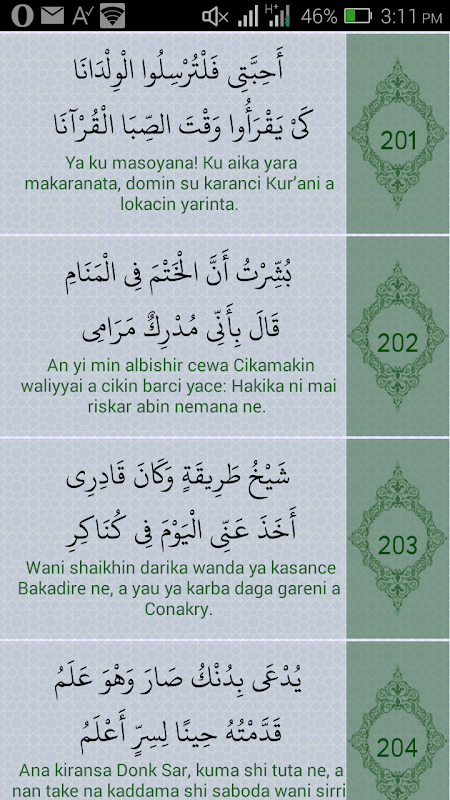 46% 3:11 PM
أَحِبَّتِى فَلْتُرْسِلُوا الْوِلْدَانَا
كَىْ يَقْرَأُوا وَقْتَ الصِّبَا الْقُرْآنَا
Ya ku masoyana! Ku aika yara
makaranata, domin su karanci Kur'ani a
lokacin yarinta.
201
بُشِّرْتُ أَنَّ الْخَتْمَ فِى الْمَنَامِ
قَالَ بِأَنِّى مُدْرِكٌ مَرَامِى
An yi min albishir cewa Cikamakin
waliyyai a cikin barci yace: Hakika ni mai
riskar abin nemana ne.
202
شَيْخُ طَرِيقَةٍ وَكَانَ قَادِرِى
أَخَذَ عَنِّى الْيَوْمَ فِى كُنَاكِرِ
Wani shaikhin darika wanda ya kasance
Bakadire ne, a yau ya karba daga gareni a
Conakry.
203
يُدْعَى بِدُنْكُ صَارَ وَهْوَ عَلَمُ
قَدَّمْتُهُ حِينًا لِسِرٍّ أَعْلَمُ
Ana kiransa Donk Sar, kuma shi tuta ne, a
nan take na kaddama shi saboda wani sirri
204